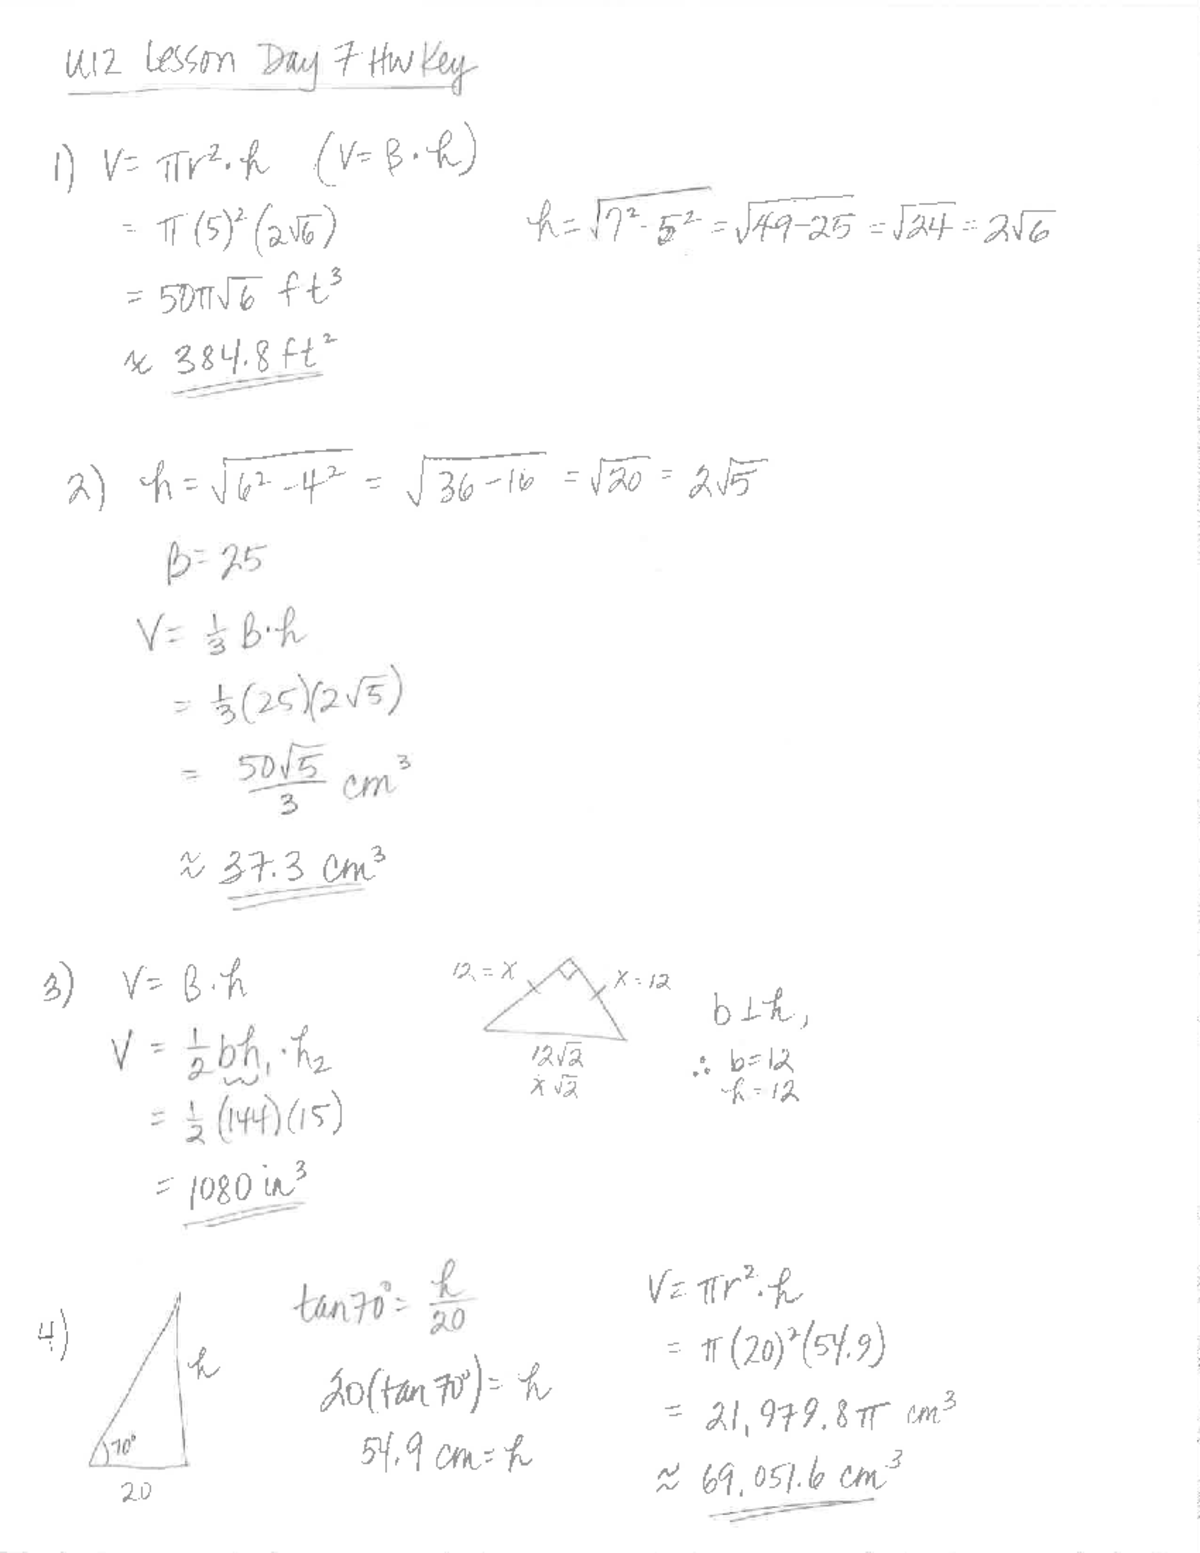 U12 Lesson Day 7 HW Key
1) V = πr²·h (V = B·h)
= π(5)²(2√6)
h = √7²-5² = √49-25 = √24 = 2√6
= 50π√6 ft³
≈ 384.8 ft²
2) h = √6²-4² = √36-16 = √20 = 2√5
B = 25
V = 1/3 B·h
= 1/3(25)(2√5)
= 50√5/3 cm³
≈ 37.3 cm³
3) V = B·h
V = 1/2 bh₁·h₂
= 1/2 (144)(15)
= 1080 in³
12 = x
x = 12
12√2
x√2
b ⊥ h,
∴ b = 12
h = 12
4)
h
70°
20
tan70° = h/20
20(tan 70°) = h
54.9 cm = h
V = πr²·h
= π(20)²(54.9)
= 21,979.8π cm³
≈ 69,051.6 cm³